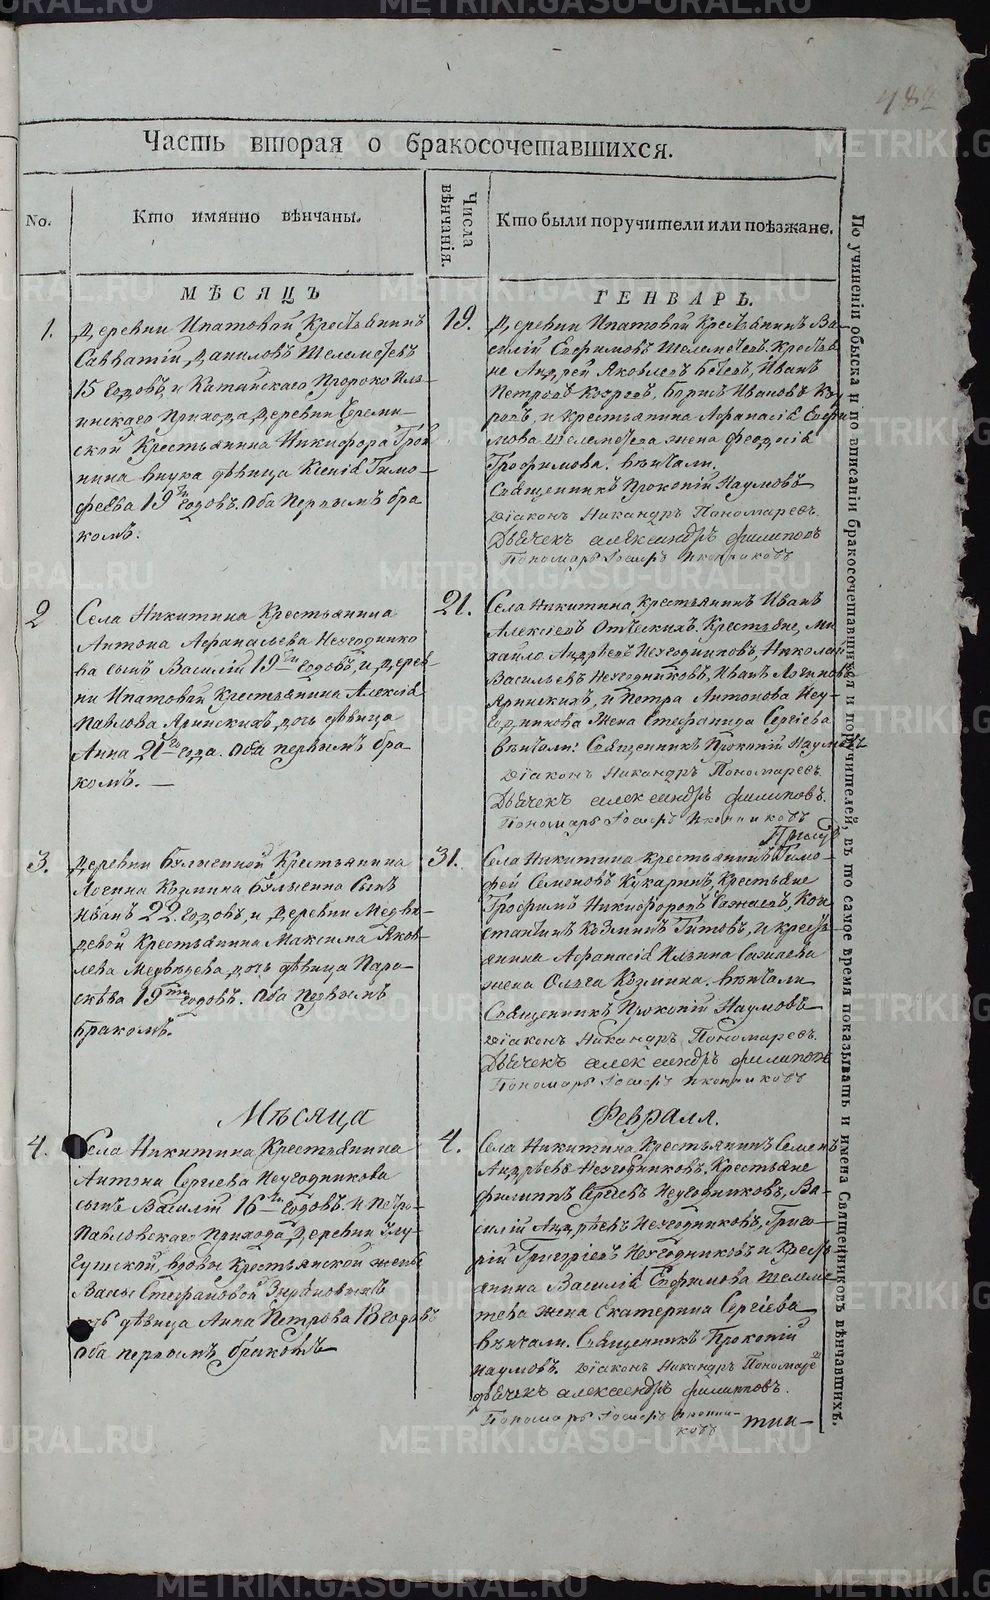 Часть вторая о бракосочетавшихся.
No.
Кто имянно вѣнчаны.
Числа вѣнчанія.
Кто были поручители или поѣзжане.
МѢСЯЦЪ
ГЕНВАРЬ.
1.
Деревни Ипатовай Крестьянинъ
Савватій Даниловъ Шелеметевъ
15 годовъ, и Катайскаго Пророко Иль-
инскаго Прихода деревни
ской Крестьянина Никифора
внука дѣвица Ксенія Тимо-
феева 19ти годовъ. Оба первымъ бра
комъ.
19.
Деревни Ипатовай Крестьянинъ Ва-
силій Евфимовъ Шелеметевъ. Крестья-
не Андрей Яковлевъ Иванъ
Петровъ Борисъ Ивановъ
и Крестьянина Афанасія Евфи
мова Шелеметева жена Феодосія
Трофимова. вѣнчали.
Священникъ Прокопій Наумовъ
Діаконъ Никандръ Пономаревъ.
Дьячекъ Александръ Филиповъ
Пономарь Іосифъ Иконниковъ
2
Села Никитина Крестьянина
Антона Афанасьева Неугоднико
ва сынъ Василій 19ти годовъ, и дерев-
ни Ипатовай Крестьянина Алексія
Павлова Яринскихъ дочь дѣвица
Анна 21го года. Оба первымъ бра
комъ. —
21.
Села Никитина Крестьянинъ Иванъ
Алексіевъ Отческихъ. Крестьяне, Ми
хайло Андрѣевъ Неугодниковъ, Николай
Васильевъ Неугодниковъ, Иванъ
Яринскихъ, и Петра Антонова Неу-
годникова жена Стефанида Сергіева
вѣнчали: Священникъ Прокопій Наумовъ
Діаконъ Никандръ Пономаревъ.
Дьячекъ Александръ Филиповъ.
Пономарь Іосифъ Иконниковъ
3.
Деревни Булыгиной Крестьянина
Логина Козмина Булыгина сынъ
Иванъ 22 годовъ, и деревни Медвѣ-
девой Крестьянина Максима Яков-
лева Медвѣдева дочь дѣвица Пара-
скѣва 19ти годовъ. Оба первымъ
бракомъ.
31.
Села Никитина Крестьянинъ Тимо-
фей Семеновъ Кукаринъ, Крестьяне
Трофимъ Никифоровъ Сажаевъ, Кон-
стантинъ Козминъ Титовъ, и кресть-
янина Афанасія Ильина Сажаева
жена Ольга Козмина. вѣнчали
Священникъ Прокопій Наумовъ
Діаконъ Никандръ Пономаревъ.
Дьячекъ Александръ Филиповъ
Пономарь Іосифъ Иконниковъ
Мѣсяца
Февраля.
4.
Села Никитина Крестьянина
Антона Сергіева Неугодникова
сынъ Василій 16ти годовъ. и Петро-
павловскаго Прихода деревни
вдовы Крестьянской жены
Вассы Стефановой Зыряновыхъ
дочь дѣвица Анна Петрова 18 годовъ
Оба первымъ бракомъ
4.
Села Никитина Крестьянинъ Семенъ
Андрѣевъ Неугодниковъ. Крестьяне
Филиппъ Сергіевъ Неугодниковъ, Ва-
силій Андрѣевъ Неугодниковъ, Григо-
рій Григоріевъ Неугодниковъ и Кресть-
янина Василія Евфимова Шелеме
тева жена Екатерина Сергіева
вѣнчали. Священникъ Прокопій
Наумовъ. Діаконъ Никандръ Пономаревъ
Дьячекъ Александръ Филипповъ.
Пономарь Іосифъ Иконни-
ковъ
По учиненіи обыска и по вписаніи бракосочетавшихся и поручителей, въ то самое время показывать и имена Священниковъ вѣнчавшихъ.
METRIKI.GASO-URAL.RU